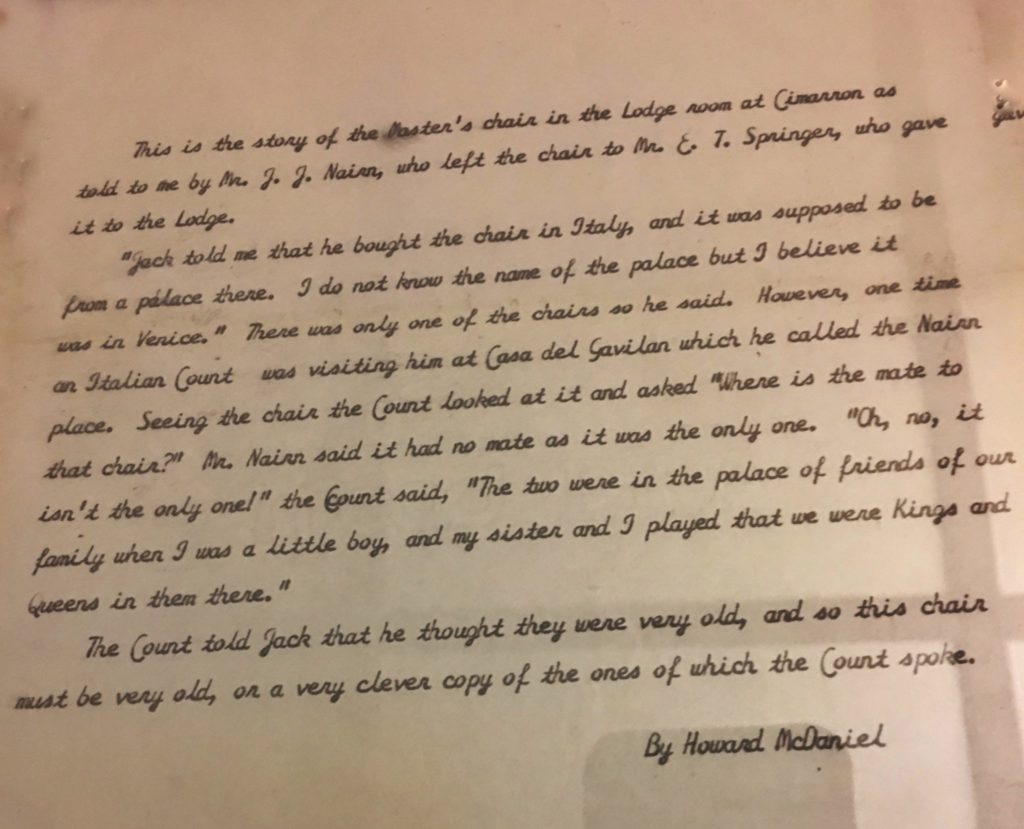 This is the story of the Master's chair in the Lodge room at Cimarron as
told to me by Mr. J. J. Nairn, who left the chair to Mr. E. T. Springer, who gave
it to the Lodge.
"Jack told me that he bought the chair in Italy, and it was supposed to be
from a palace there. I do not know the name of the palace but I believe it
was in Venice." There was only one of the chairs so he said. However, one time
an Italian Count was visiting him at Casa del Gavilan which he called the Nairn
place. Seeing the chair the Count looked at it and asked "Where is the mate to
that chair?" Mr. Nairn said it had no mate as it was the only one. "Oh, no, it
isn't the only one!" the Count said, "The two were in the palace of friends of our
family when I was a little boy, and my sister and I played that we were Kings and
Queens in them there."
The Count told Jack that he thought they were very old, and so this chair
must be very old, or a very clever copy of the ones of which the Count spoke.
By Howard McDaniel